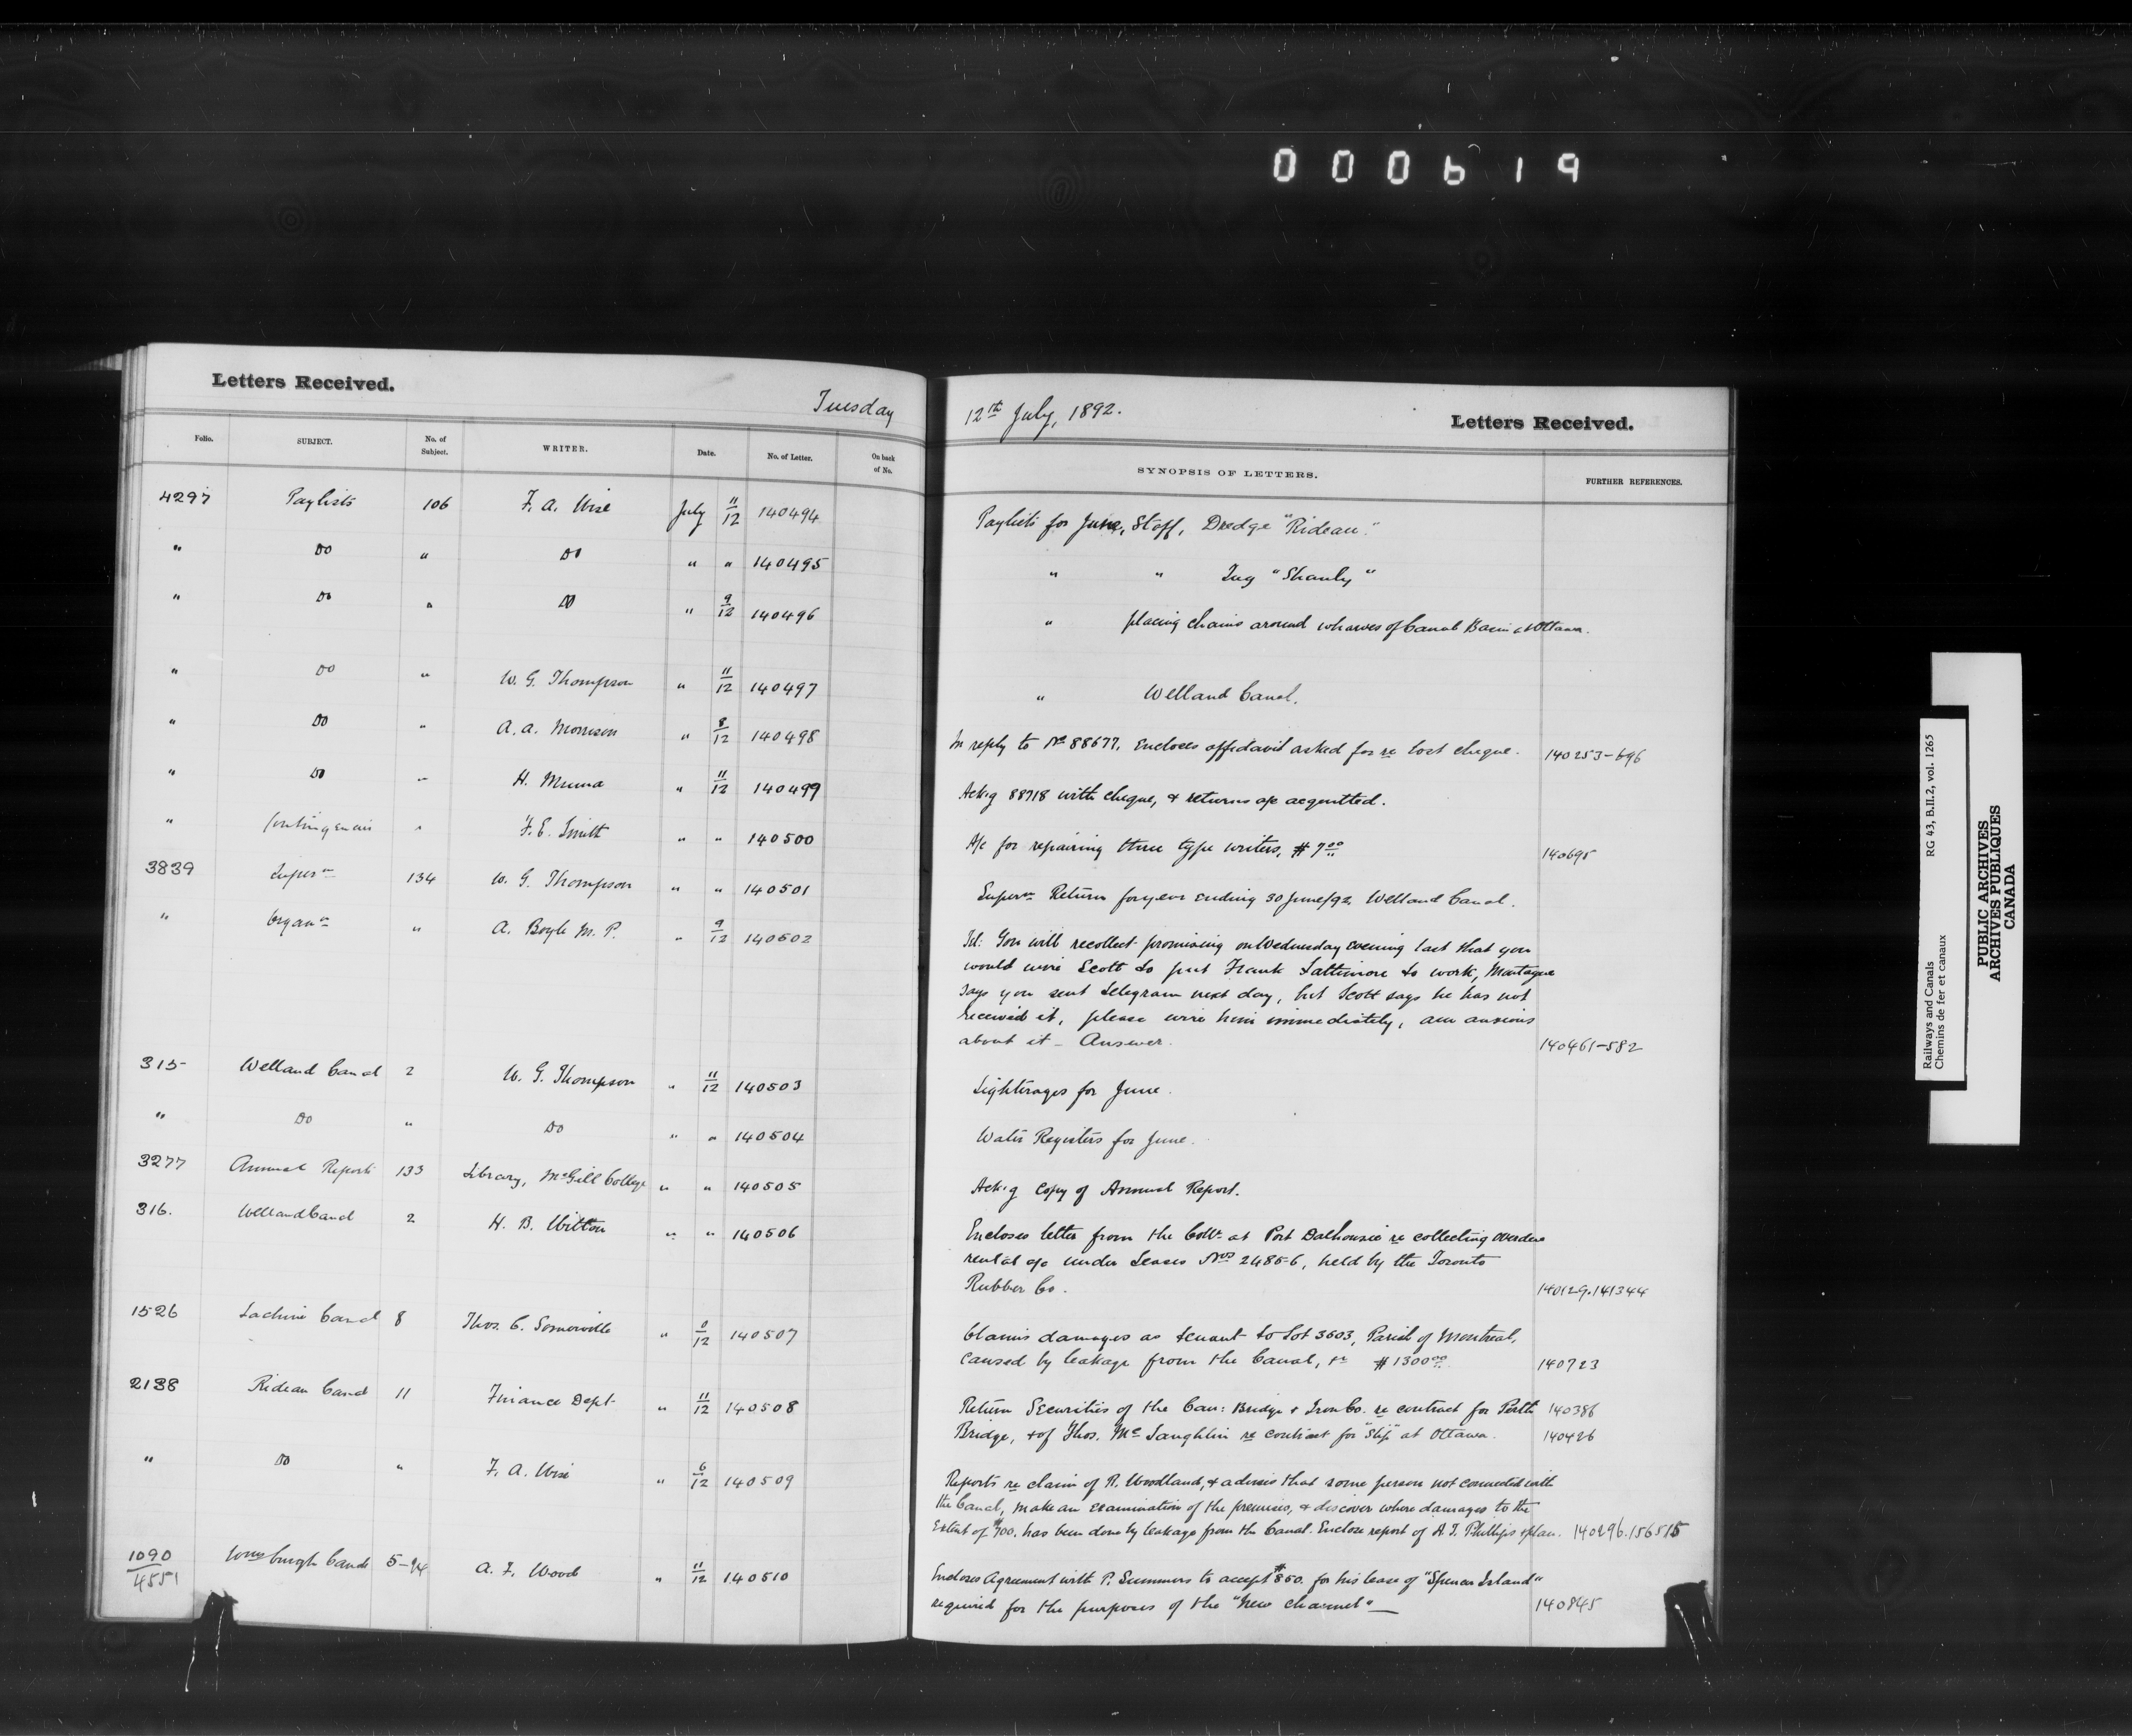 000619
Letters Received.
Tuesday
12th July, 1892.
Letters Received.
Folio. SUBJECT. No. of Subject. WRITER. Date. No. of Letter. On back of No. SYNOPSIS OF LETTERS. FURTHER REFERENCES.
4297 Paylists 106 F. A. Wise July 11/12 140494 Paylists for June, Staff, Dredge "Rideau"
" Do " Do " " 140495 " " Tug "Shanly"
" Do " Do " 9/12 140496 " placing chains around wharves of Canal Basin at Ottawa.
" Do " W. G. Thompson " 11/12 140497 " Welland Canal.
" Do " A. A. Morrison " 8/12 140498 In reply to No 88677. Encloses affidavit asked for re lost cheque. 140253-696
" Do " H. Munna " 11/12 140499 Ack.g 88718 with cheque, & returns a/c acquitted.
" Contingencies " F. E. Smith " " 140500 A/c for repairing three type writers, $7.00 140695
3839 Supern 134 W. G. Thompson " " 140501 Supern Return for year ending 30 June/92. Welland Canal.
" Organn " A. Boyle M. P. " 9/12 140502 Tel: You will recollect promising on Wednesday evening last that you
would wire Scott to put Frank Lattimore to work, Montague
says you sent telegram next day, but Scott says he has not
received it, please wire him immediately, am anxious
about it – Answer. 140461-582
315 Welland Canal 2 W. G. Thompson " 11/12 140503 Lighterages for June.
" Do " Do " " 140504 Water Registers for June.
3277 Annual Report 133 Library, McGill College " " 140505 Ack.g Copy of Annual Report.
316. Welland Canal 2 H. B. Witton " " 140506 Encloses letter from the Collr at Port Dalhousie re collecting overdue
rental a/c under Leases Nos 2485-6, held by the Toronto
Rubber Co. 140129.141344
1526 Lachine Canal 8 Thos. C. Somerville " 12 140507 Claims damages as tenant to Lot 3603, Parish of Montreal,
caused by leakage from the Canal, $1300.00 140723
2138 Rideau Canal 11 Finance Dept " 11/12 140508 Return Securities of the Can: Bridge & Iron Co. re contract for Perth 140386
Bridge, & of Thos. McLaughlin re contract for "Slip" at Ottawa. 140426
" Do " F. A. Wise " 6/12 140509 Reports re claim of R. Woodland, & advises that some person not connected with
the Canal, make an examination of the premises, & discover where damages to the
extent of $700. has been done by leakage from the Canal. Enclose report of A. T. Phillips & plan. 140296.156515
1090/4551 Wmsburgh Canals 5-94 A. F. Wood " 11/12 140510 Encloses Agreement with P. Summers to accept $850. for his lease of "Spencer Island"
required for the purposes of the "New Channel" — 140845
Railways and Canals RG 43, B.II.2, vol. 1265
Chemins de fer et canaux
PUBLIC ARCHIVES
ARCHIVES PUBLIQUES
CANADA